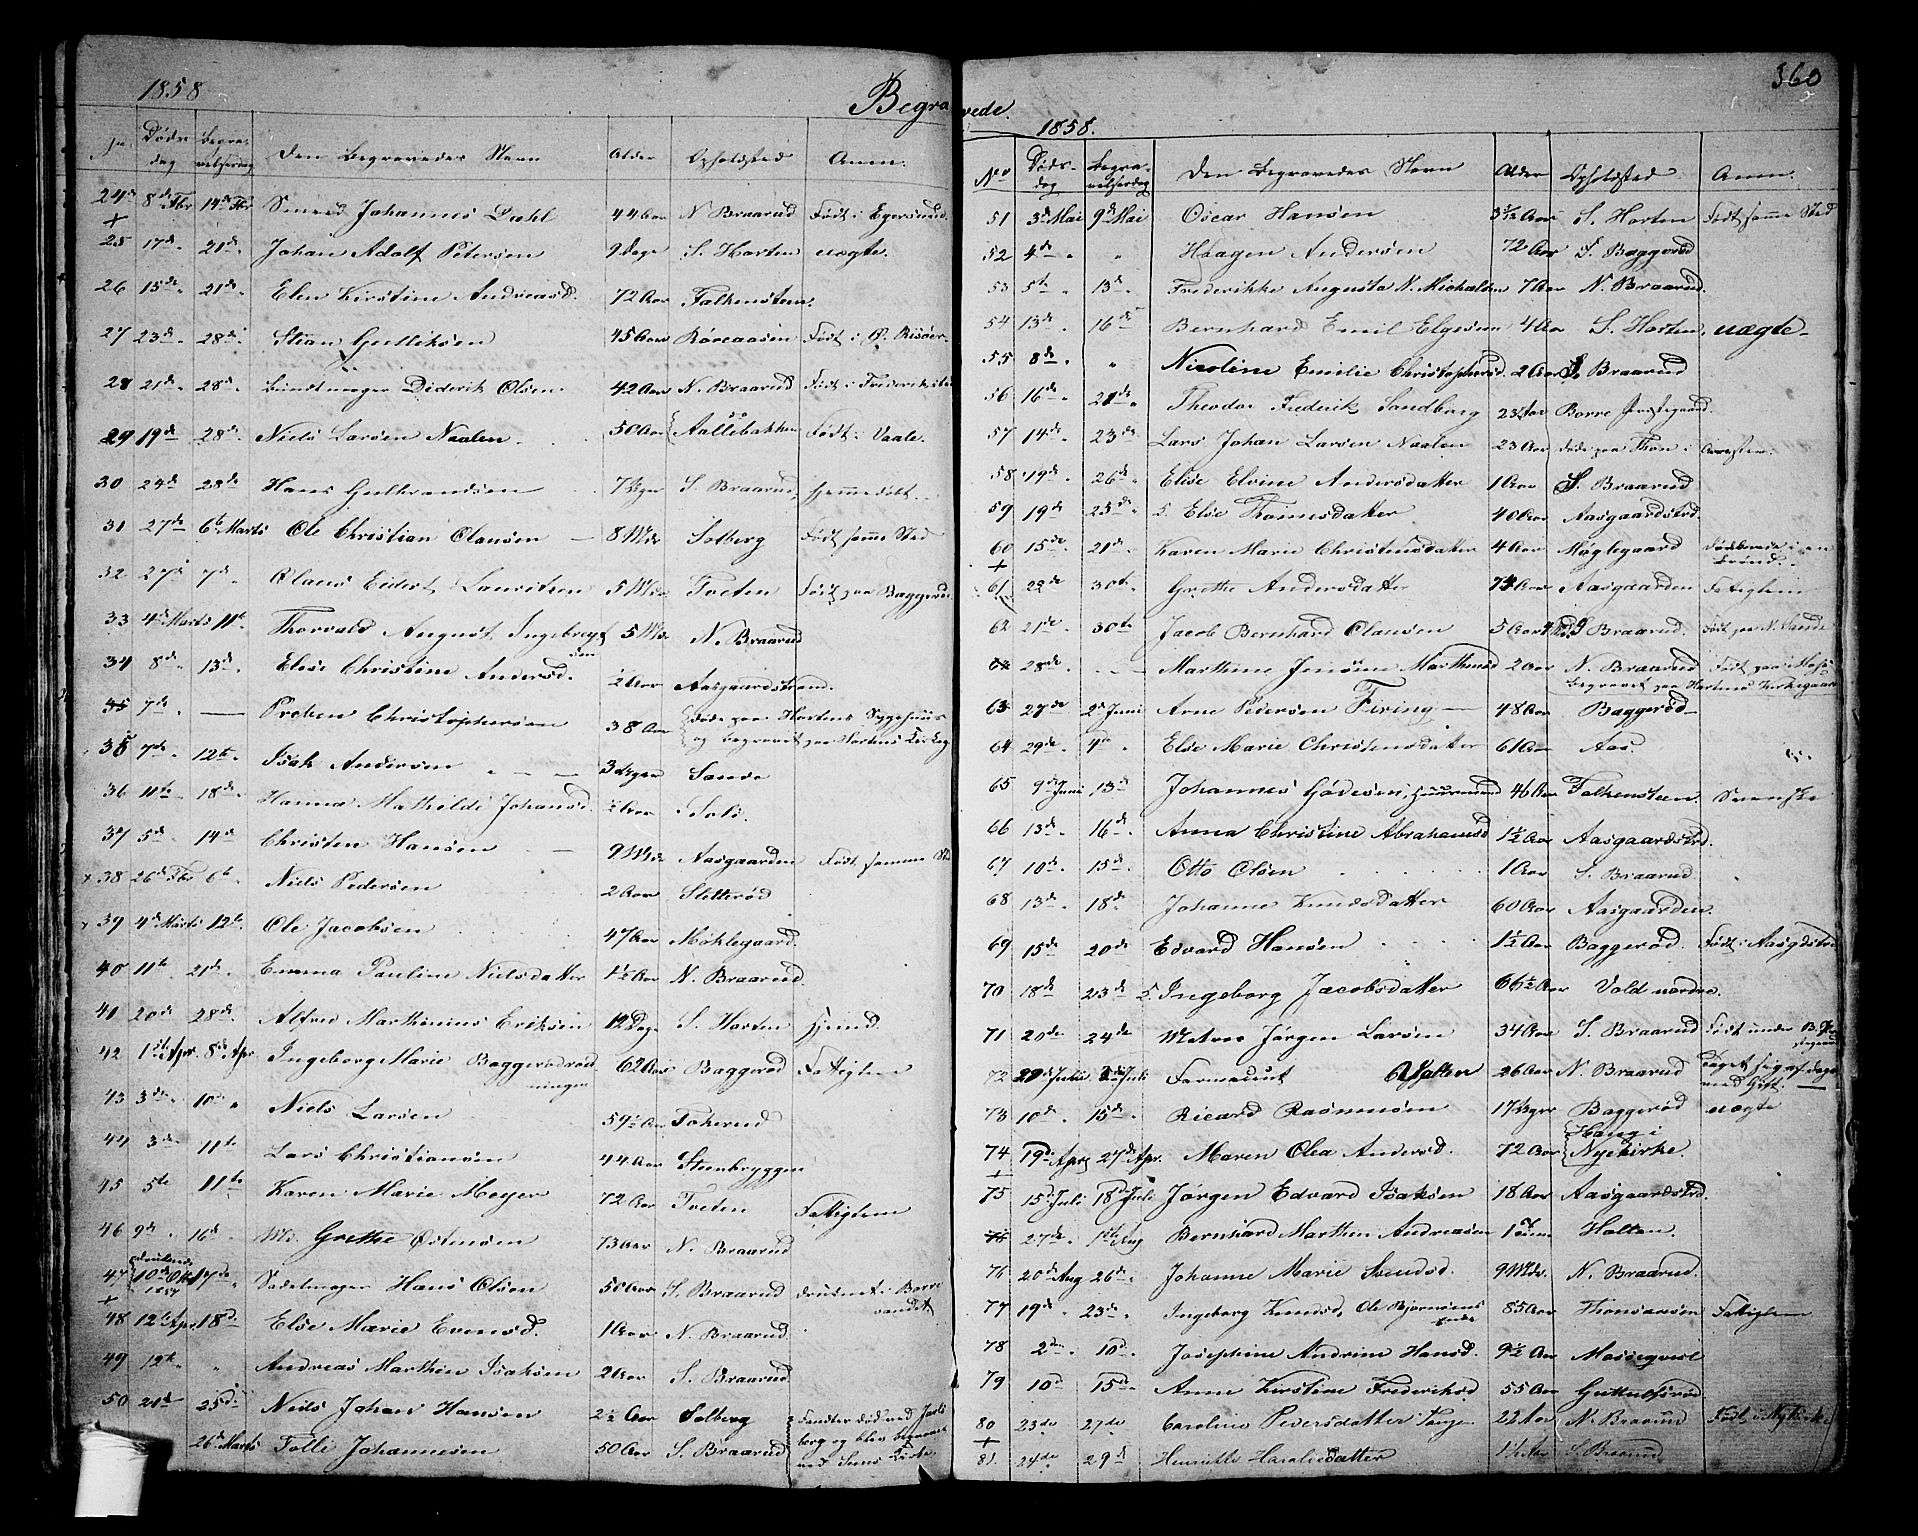 1858
Begra
No Døds dag Begra- velsesdag Den Begravedes Navn Alder Opholdsted Anm.
24 8de Fbr 14de Fbr Smed Johannes Dahl 44 Aar N. Braarud Født i Egersund
25 17de 21de Johan Adolf Petersen 9 Dage S. Horten uægte.
26 15de 21de Elen Kirstine Andreasd. 72 Aar Falkensteen.
27 23de 28de Stian Gulliksen 45 Aar Røreaasen Født i Ø. Risøer
28 21de 28de Bundtmager Diderik Olsen 42 Aar N. Braarud Født i Frederiks
29 19de 28de Niels Larsen Naalen 50 Aar Aallebakken Født i Vaale.
30 24de 28de Hans Gulbrandsen 7 Uger S. Braarud hjemmedøbt
31 27de 6te Marts Ole Christian Olausen 8 Mdr Solberg Født samme Sted
32 27de 7de Claus Eidert Lauritsen 5 Mdr Tveten Født paa Baggerød
33 4de Marts 11te Thorvald August Ingebregtsen 5 Mdr N. Braarud
34 8de 13de Elise Christine Andersd. ½ Aar Aasgaardstrand.
35 7de — Preben Christophersen 38 Aar døde paa Hortens Sygehuus
og begravet paa Hortens Kirkeg
35 7de 12te Isak Andersen 3 Uger Sande
36 11te 18de Hanna Mathilde Johansd. ½ Aar Solv.
37 5de 14de Christen Hansen 9 Mdr Aasgaarden Født samme Sted
38 26de Fbr 6te Niels Pedersen 2 Aar Sletterød
39 4de Marts 12te Ole Jacobsen 47 Aar Møhlegaard.
40 11te 21de Emma Pauline Nielsdatter 1½ Aar N. Braarud.
41 20de 28de Alfred Marthinius Eriksen 12 Dage S. Horten hjemd.
42 1ste Apr. 8de Apr Ingeborg Marie Baggerød 62 Aar Baggerød Fattiglem
43 3de 10de Niels Larsen 59½ Aar Tokerud
44 3de 11te Lars Christiansen 44 Aar Steenbryggen
45 5te 11te Karen Marie Meyer 72 Aar Tveten Fattiglem
46 9de 16de Grethe Østensen 73 Aar N. Braarud
47 10de Okt 1857 17de Sadelmager Hans Olsen 50 Aar S. Braarud druknet i Borre
vandet
48 12te Apr. 18de Else Marie Evensd. 1 Aar N. Braarud
49 12te " Andreas Marthin Isaksen 2 Aar S. Braarud
50 21de 25de Niels Johan Hansen 2½ Aar Solberg
26de Marts Tolli Johannesen 50 Aar S. Braarud Funden død ved Jarls
berg og blev begravet
ved Sems Kirke
360
vede.
1858.
No Døds- dag Begra- velsesdag Den Begravedes Navn Alder Opholdsted Anm.
51 3de Mai 9de Mai Oscar Hansen S. Horten Født samme Sted
52 4de " Haagen Andersen 72 Aar S. Baggerød
53 5te 13de Frederikke Augusta N. Michalsen 7 Aar N. Braarud.
54 13de 16de Bernhard Emil Elgesen 4 Aar S. Horten. uægte
55 8de " Nicoline Emilie Christophersd. 2 Aar S. Braarud
56 16de 21de Theodor Frederik Sandberg 23 Aar Borre Præstegaard.
57 14de 23de Lars Johan Larsen Naalen 23 Aar døde paa Thøn i Arresten.
58 19de 26de Elise Elvine Andersdatter 1 Aar S. Braarud
59 19de 25de Else Thomesdatter 40 Aar Aasgaardstrd.
60 15de 21de Karen Marie Christensdatter 4 Aar Møglegaard Død i en
Brønd.
61 22de 30te Grethe Andersdatter 74 Aar Aasgaarden Fattiglem
62 21de 30te Jacob Bernhard Olausen 5 Aar Braarud. Født paa N. Sande
28de Marthine Jensine Marthinsd 2 Aar N. Braarud Født paa Moss
begravet paa Hortens Kirkegaard
63 27de 2de Juni Arne Pedersen Firing 48 Aar Baggerød
64 29de 4de Else Marie Christensdatter 61 Aar Aas.
65 9de Juni 13de Johannes Gødesen, Huusmand 46 Aar Falkensteen. Svenske
66 13de 16de Anna Christine Abrahamsd 1½ Aar Aasgaardstrd.
67 10de 15de Otto Olsen 1 Aar S. Braarud.
68 13de 18de Johanne Knudsdatter 60 Aar Aasgaarden.
69 15de 20de Edvard Hansen 1½ Aar Baggerød. Født i Aasgdstrd
70 18de 23de Ingeborg Jacobsdatter 66½ Aar Vold nordre.
71 20de 24de Matros Jørgen Larsen 34 Aar S. Braarud Født under B. Præ
stegaard
72 Juli Farmaceut Walter 26 Aar N. Braarud Taget sig af dage
med Gift.
73 10de 15de Ricard Rasmusen 17 Uger Baggerød uægte
74 19de Apr 27de Apr. Maren Olea Andersd. 72 Aar Haug i
Nykirke.
75 15de Juli 18de Juli Jørgen Edvard Isaksen 18 Aar Aasgaardstrd.
27de 1ste Aug Bernhard Marthin Andreasen Holten.
76 20de Aug 26de Johanne Marie Svendsd. 9 Mdr. N. Braarud.
77 19de 23de Ingeborg Knudsd, Ole Bjørnsens
Enke 85 Aar Thorsaasen Fattiglem
78 10de Josephine Andrine Hansd. 9½ Aar
79 10de 15de Anne Kirstine Frederiksd 55 Aar
80 23de 27de Caroline Pedersdatter 22 Aar N. Braarud Født i Nykirke
81. 24de 29de Henriette Haraldsdatter S. Braarud